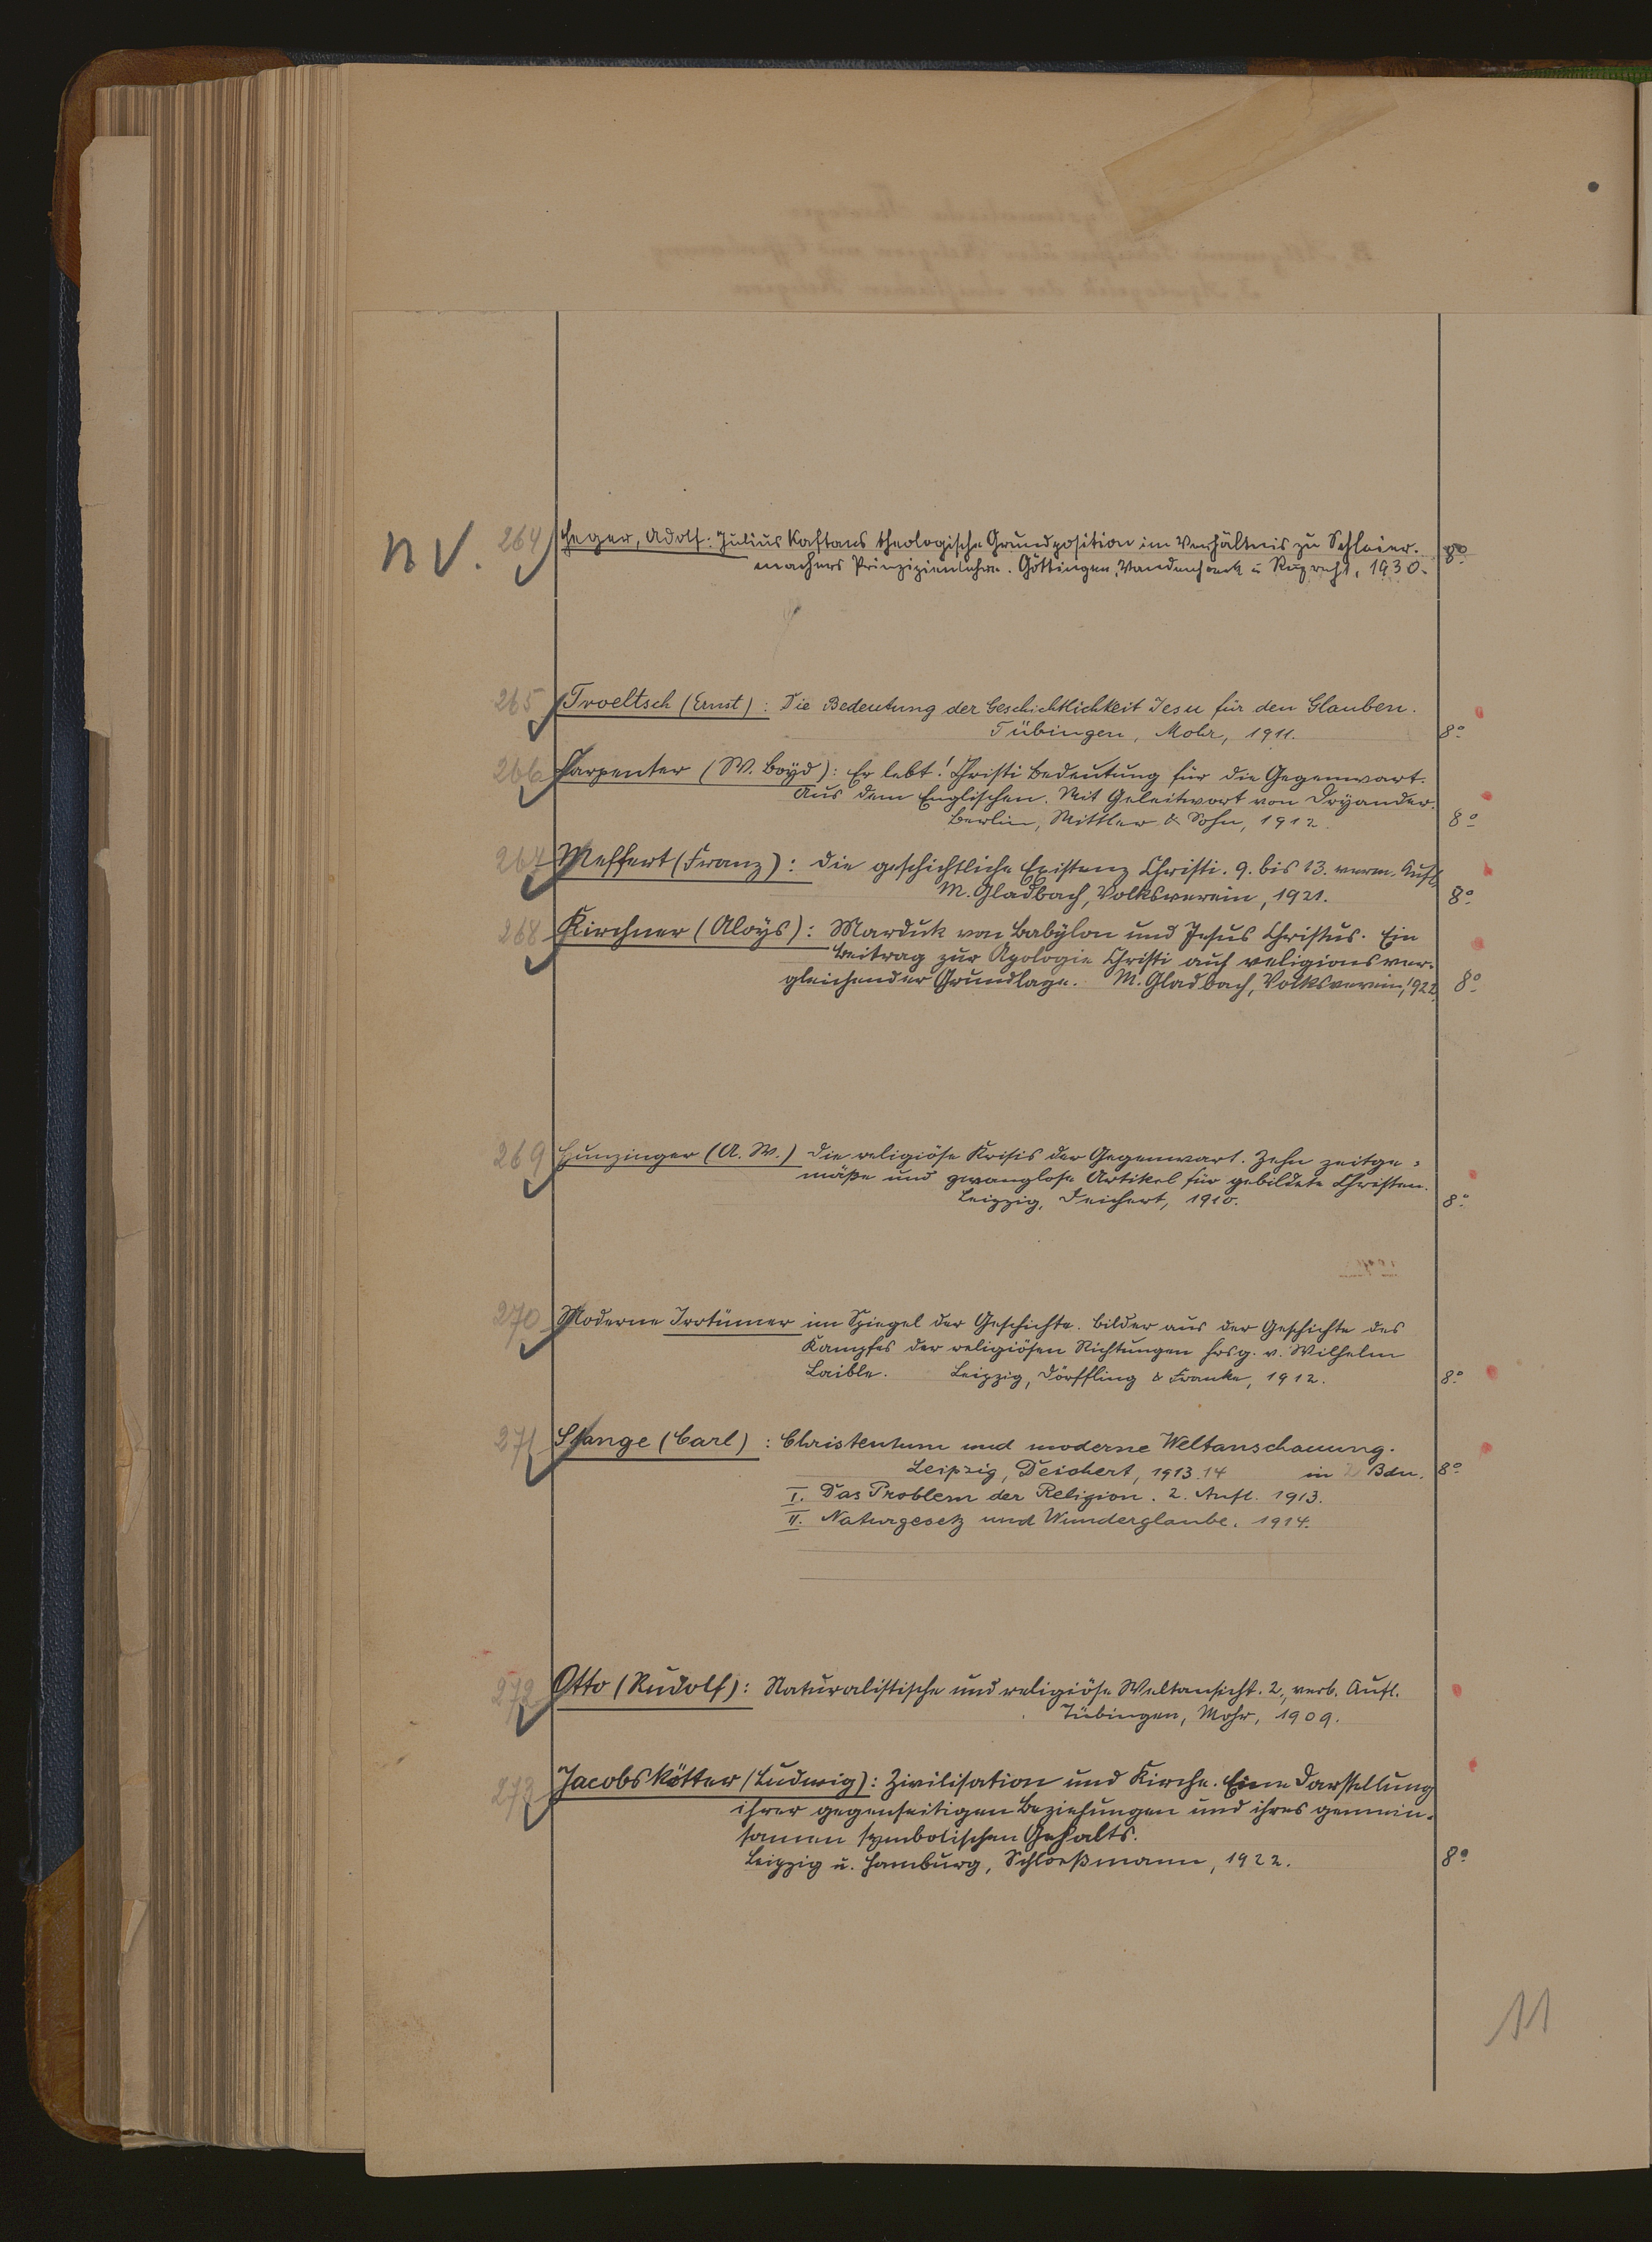 nV. 264 Heger, Adolf: Julius Kaftans theologische Grundposition im Verhältnis zu Schleier- 8°
machers Prinzipienlehre. Göttingen, Vandenhoeck u Ruprecht, 1930.
265 Troeltsch (Ernst): Die Bedeutung der Geschichtlichkeit Jesu für den Glauben.
Tübingen, Mohr, 1911. 8°
266 Carpenter (W. Boyd): Er lebt! Christi Bedeutung für die Gegenwart.
Aus dem Englischen. Mit Geleitwort von Dryander.
Berlin, Mittler & Sohn, 1912. 8°
267 Meffert (Franz): Die geschichtliche Existenz Christi. 9. bis 13. verm. Aufl.
M. Gladbach, Volksverein, 1921. 8°
268 Kirchner (Aloys): Marduk von Babylon und Jesus Christus. Ein
Beitrag zur Apologie Christi auf religionsver-
gleichender Grundlage. M. Gladbach, Volksverein, 1922. 8°
269 Hunzinger (A. W.) Die religiöse Krisis der Gegenwart. Zehn zeitge-
mäße und zwanglose Artikel für gebildete Christen.
Leipzig, Deichert, 1910. 8°
270 Moderne Irrtümer im Spiegel der Geschichte. Bilder aus der Geschichte des
Kampfes der religiösen Richtungen hrsg. v. Wilhelm
Laible. Leipzig, Dörffling & Franke, 1912. 8°
271 Stange (Carl): Christentum und moderne Weltanschauung.
Leipzig, Deichert, 1913.14 in 2 Bdn. 8°
I. Das Problem der Religion. 2. Aufl. 1913.
II. Naturgesetz und Wunderglaube. 1914.
272 Otto (Rudolf): Naturalistische und religiöse Weltansicht. 2., verb. Aufl.
Tübingen, Mohr, 1909.
273 Jacobskötter (Ludwig): Zivilisation und Kirche. Eine Darstellung
ihrer gegenseitigen Beziehungen und ihres gemein-
samen symbolischen Gehalts.
Leipzig u. Hamburg, Schloeßmann, 1922. 8°
11